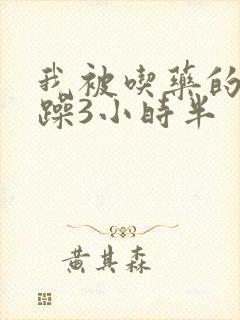 我被喫藥的
躁3小時半
黄其森